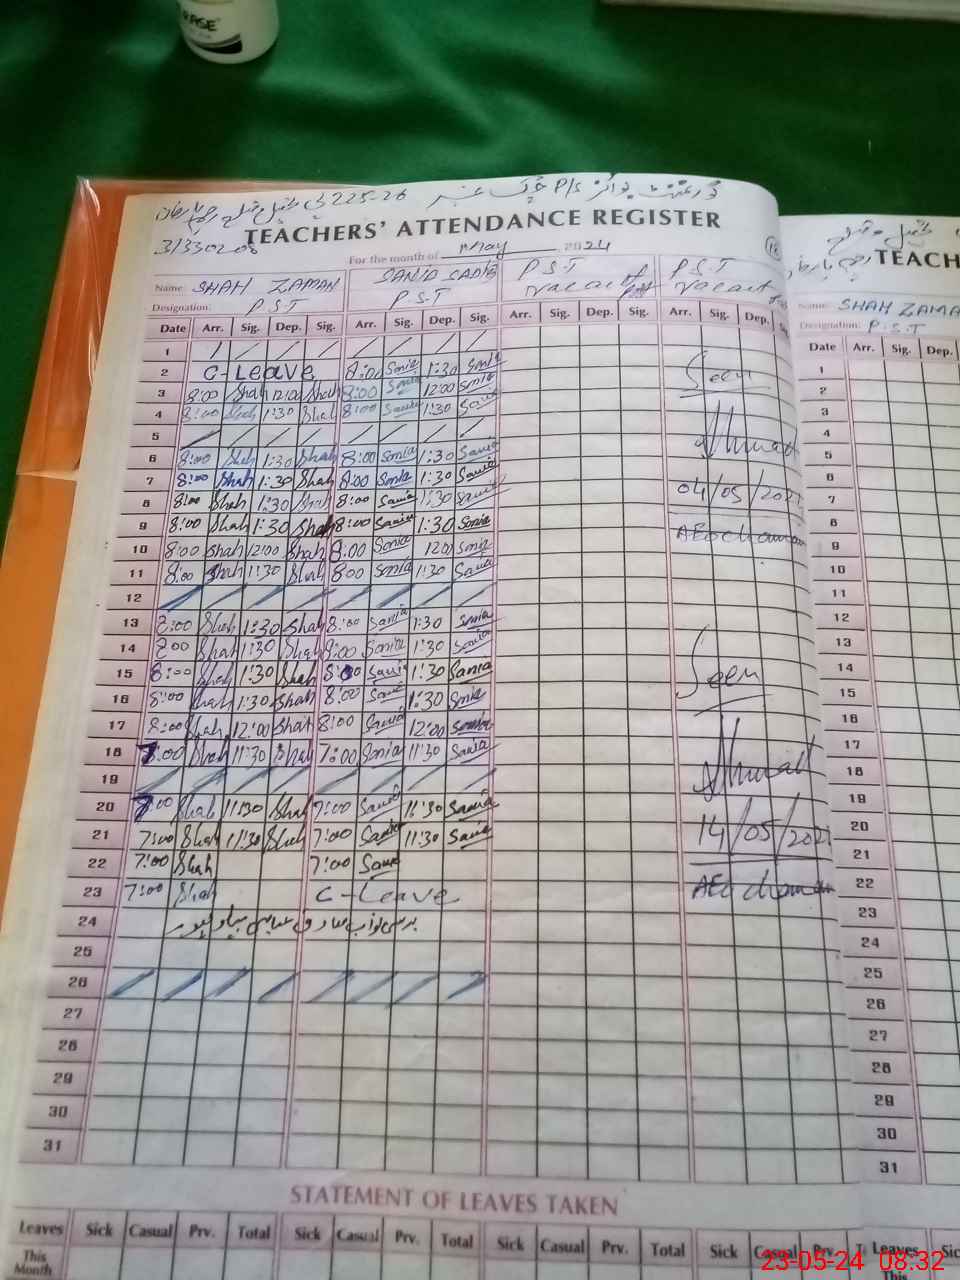 RASE
گورنمنٹ بوائز P/S چک نمبر 225-26
31330208
TEACHERS' ATTENDANCE REGISTER
For the month of May 2024
Name: SHAH ZAMAN SANIA SADIQ P.S.T P.S.T
Designation: P.S.T P.S.T Vacant Vacant
Date Arr. Sig. Dep. Sig. Arr. Sig. Dep. Sig. Arr. Sig. Dep. Sig. Arr. Sig. Dep. Sig.
1
2 C-Leave 8:00 Sonia 1:30 Sonia
3 8:00 Shah 12:00 Shah 8:00 Sonia 12:00 Sonia
4 8:00 Shah 1:30 Shah 8:00 Sania 1:30 Sania
5
6 8:00 Shah 1:30 Shah 8:00 Sonia 1:30 Sania
7 8:00 Shah 1:30 Shah 8:00 Sonia 1:30 Sania
8 8:00 Shah 1:30 Shah 8:00 Sania 1:30 Sania
9 8:00 Shah 1:30 Shah 8:00 Sania 1:30 Sonia
10 8:00 Shah 12:00 Shah 8:00 Sonia 12:00 Sonia
11 8:00 Shah 1:30 Shah 8:00 Sonia 1:30 Sania
12
13 8:00 Shah 1:30 Shah 8:00 Sania 1:30 Sonia
14 8:00 Shah 1:30 Shah 8:00 Sonia 1:30 Sonia
15 8:00 Shah 1:30 Shah 8:00 Sania 1:30 Sania
16 8:00 Shah 1:30 Shah 8:00 Sania 1:30 Sonia
17 8:00 Shah 12:00 Shah 8:00 Sania 12:00 Sonia
18 7:00 Shah 11:30 Shah 7:00 Sonia 11:30 Sania
19
20 7:00 Shah 11:30 Shah 7:00 Sania 11:30 Sania
21 7:00 Shah 11:30 Shah 7:00 Sania 11:30 Sania
22 7:00 Shah 7:00 Sania
23 7:00 Shah C-Leave
24 برسی نواب صادق عباسی بہاولپور
25
26
27
28
29
30
31
Seen
Ahmad
04/05/202
AEO
Seen
Ahmad
14/05/202
AEO
STATEMENT OF LEAVES TAKEN
Leaves Sick Casual Prv. Total Sick Casual Prv. Total Sick Casual Prv. Total Sick Casual Prv.
This Month
16
TEACH
Name: SHAH ZAMA
Designation: P.S.T
Date Arr. Sig. Dep.
1
2
3
4
5
6
7
8
9
10
11
12
13
14
15
16
17
18
19
20
21
22
23
24
25
26
27
28
29
30
31
Leaves Sic
This
23-05-24 08:32